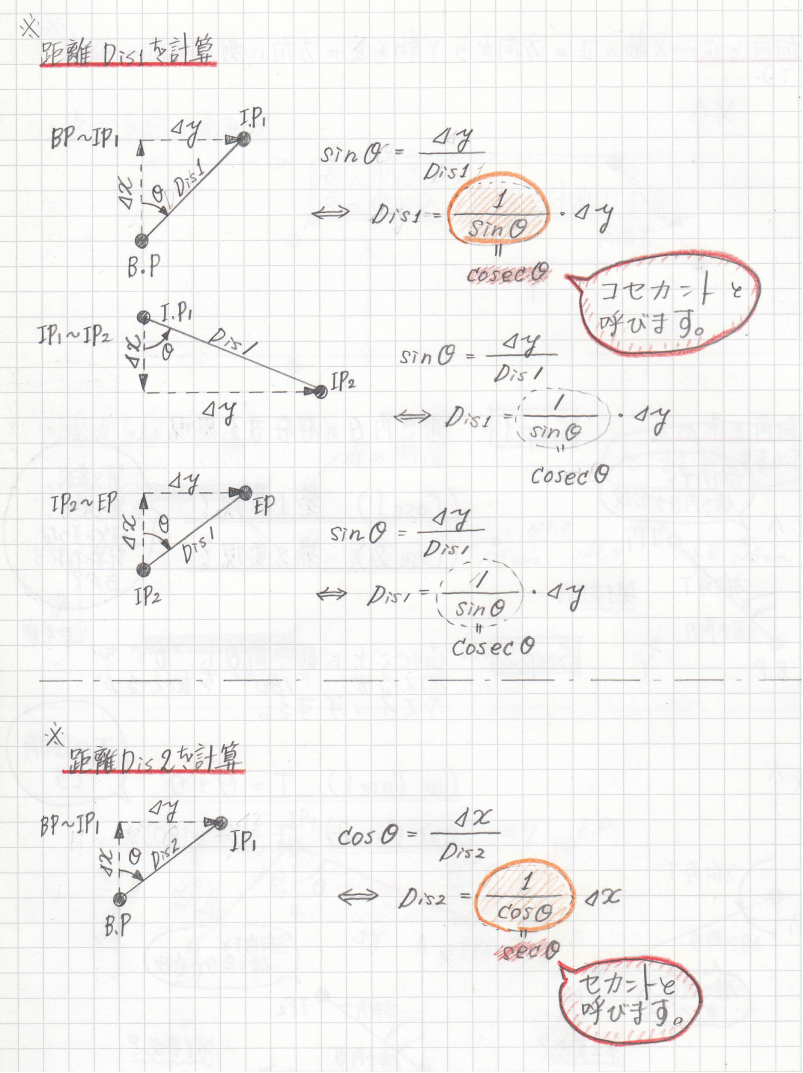 ※
距離Dis1を計算
BP~IP₁
Δy
I.P₁
Δx
θ
Dis1
B.P
sinθ = Δy / Dis1
⇔ Dis1 = 1 / sinθ ・Δy
=
cosecθ
コセカントと
呼びます。
IP₁~IP₂
I.P₁
Δx
θ
Dis1
IP₂
Δy
sinθ = Δy / Dis1
⇔ Dis1 = 1 / sinθ ・Δy
=
cosecθ
IP₂~EP
Δy
EP
Δx
θ
Dis1
IP₂
sinθ = Δy / Dis1
⇔ Dis1 = 1 / sinθ ・Δy
=
cosecθ
※
距離Dis2を計算
BP~IP₁
Δy
IP₁
Δx
θ
Dis2
B.P
cosθ = Δx / Dis2
⇔ Dis2 = 1 / cosθ Δx
=
secθ
セカントと
呼びます。